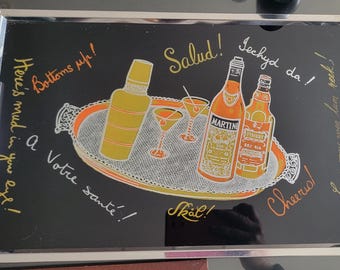 Salud!
Iechyd da!
Bottoms up!
Here's mud in your eye!
MARTINI
A Votre santé!
Skål!
Cheerio!